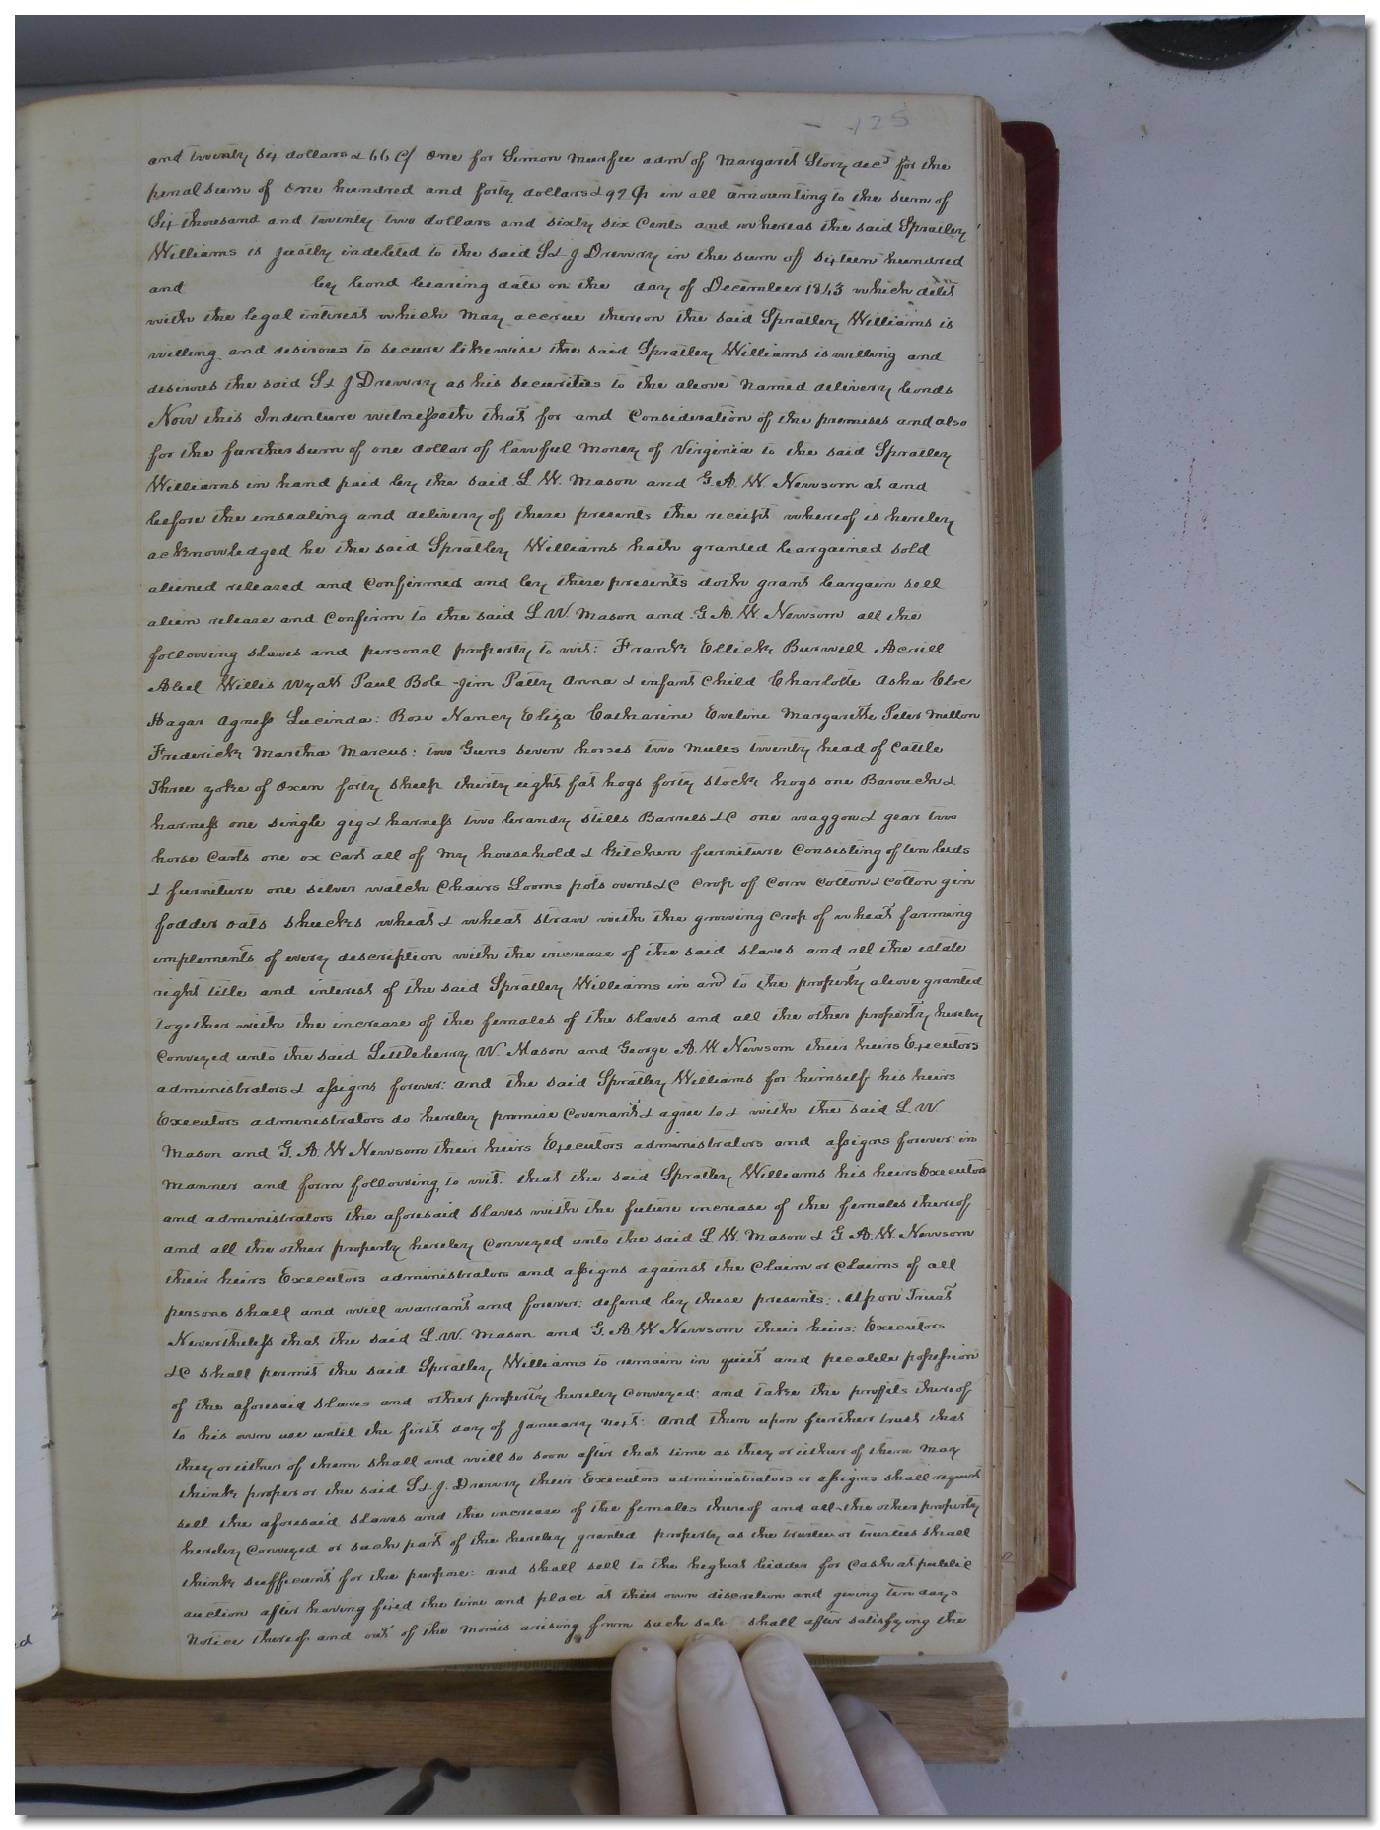 125
and twenty six dollars & 66 c/ One for Simon Murfee admr of Margaret Story decd for the
penal sum of One hundred and forty dollars & 92 C/ in all amounting to the sum of
Six thousand and twenty two dollars and sixty six Cents and whereas the said Spratley
Williams is justly indebted to the said S & J Drewry in the sum of sixteen hundred
and by bond bearing date on the day of December 1843 which debt
with the legal interest which May accrue thereon the said Spratley Williams is
willing and desirous to secure likewise the said Spratley Williams is willing and
desirous the said S & J Drewry as his securities to the above Named delivery bonds
Now this Indenture witnesseth that for and Consideration of the premises and also
for the further sum of one dollar of lawful Money of Virginia to the said Spratley
Williams in hand paid by the said L W. Mason and G. A. W. Newsom at and
before the ensealing and delivery of these presents the receipt whereof is hereby
acknowledged he the said Spratley Williams hath granted bargained sold
aliened released and Confirmed and by these presents doth grant bargain sell
alien release and Confirm to the said L W. Mason and G A. W. Newsom all the
following slaves and personal property to wit: Frank Ellick Burwell Acrill
Abel Willis Wyatt Paul Bob Jim Patty Anna & infant Child Charlotte Asha Cloe
Hagar Agness Lucinda: Rose Nancy Eliza Catharine Eveline Margarette Peter Melton
Frederick Martha Marcus: two Guns seven horses two Mules twenty head of Cattle
Three yoke of Oxen forty sheep thirty eight fat hogs forty stock hogs one Barouch &
harness one single gig & harness two brandy stills Barrels &C one waggon & gear two
horse Carts one ox cart all of My household & kitchen furniture Consisting of ten beds
& furniture one silver watch Chairs Looms pots ovens &C Crop off Corn Cotton & Cotton gin
fodder oats shucks wheat & wheat straw with the growing Crop of wheat farming
implements of every description with the increase of the said slaves and all the estate
right title and interest of the said Spratley Williams in and to the property above granted
together with the increase of the females of the slaves and all the other property hereby
Conveyed unto the said Littleberry W. Mason and George A. W Newsom their heirs Executors
administrators & assigns forever: and the said Spratley Williams for himself his heirs
Executors administrators do hereby promise Covenant & agree to & with the said L. W
Mason and G. A. W Newsom their heirs Executors administrators and assigns forever in
Manner and form following to wit. that the said Spratley Williams his heirs Executors
and administrators the aforesaid slaves with the future increase of the females thereof
and all the other property hereby Conveyed unto the said L W. Mason & G A. W. Newsom
their heirs Executors administrators and assigns against the Claim or Claims of all
persons shall and will warrant and forever defend by these presents: Upon Trust
Nevertheless that the said L. W. Mason and G. A. W Newsom their heirs: Executors
&C shall permit the said Spratley Williams to remain in quiet and pecable possession
of the aforesaid slaves and other property hereby Conveyed: and take the profits thereof
to his own use until the first day of January next: and then upon further trust that
they or either of them shall and will so soon after that time as they or either of them May
think proper or the said S & J. Drewry their Executors administrators or assigns shall request
sell the aforesaid slaves and the increase of the females thereof and all the other property
hereby Conveyed or such part of the hereby granted property as the trustee or trustees shall
think sufficient for the purpose: and shall sell to the highest bidder for Cash at public
auction after having fixed the time and place at their own discretion and giving ten days
Notice thereof and out of the Monies arising from such sale shall after satisfying the